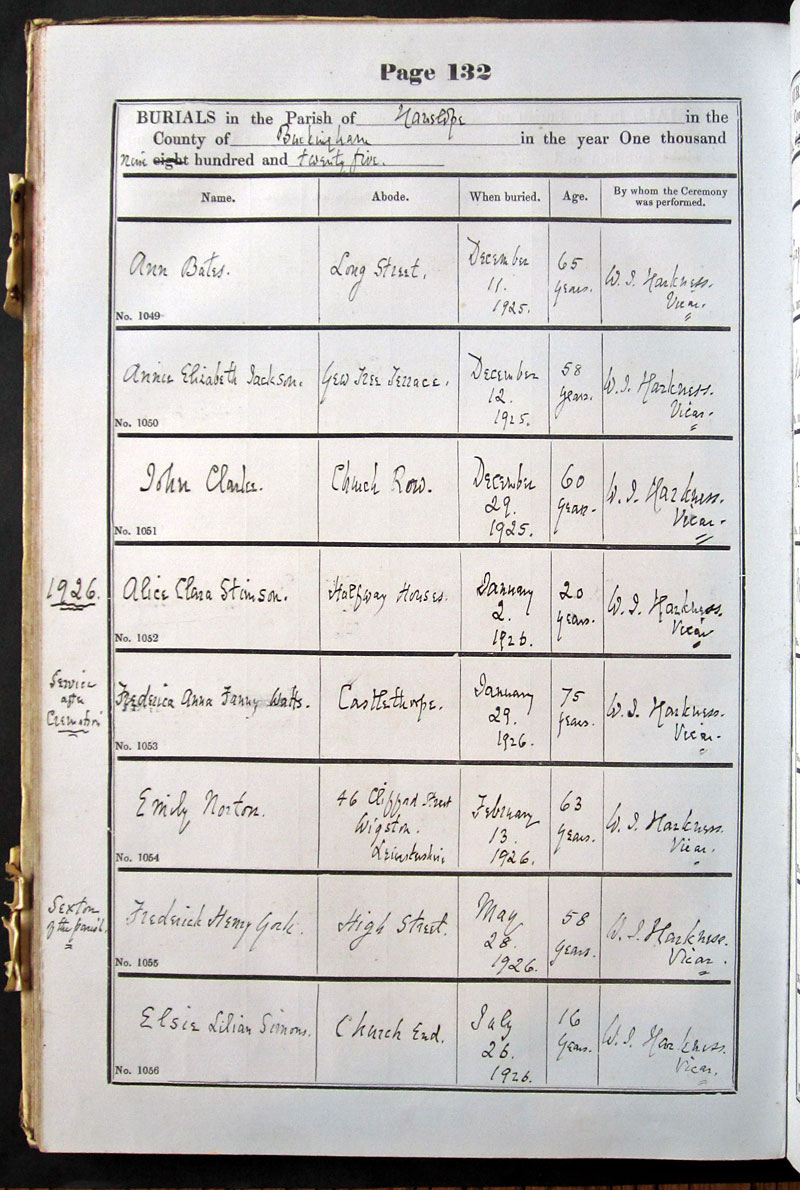 Page 132
BURIALS in the Parish of Hanslope in the
County of Buckingham in the year One thousand
Nine eight hundred and twenty five.
Name. Abode. When buried. Age. By whom the Ceremony was performed.
Ann Bates. Long Street. December 11. 1925. 65 years. W. J. Harkness. Vicar.
No. 1049
Annie Elizabeth Jackson. Yew Tree Terrace. December 12. 1925. 58 years. W. J. Harkness. Vicar.
No. 1050
John Clarke. Church Row. December 29. 1925. 60 years. W. J. Harkness. Vicar.
No. 1051
1926. Alice Clara Stimson. Halfway Houses. January 2. 1926. 20 years. W. J. Harkness. Vicar
No. 1052
Service after Cremation Frederica Anna Fanny Watts. Castlethorpe. January 29. 1926. 75 years. W. J. Harkness. Vicar.
No. 1053
Emily Norton. 46 Clifford Street Wigston. Leicestershire February 13. 1926. 63 years. W. J. Harkness. Vicar.
No. 1054
Sexton of the parish. Frederick Henry Cook. High Street. May 28. 1926. 58 years. W. J. Harkness. Vicar.
No. 1055
Elsie Lilian Simons. Church End. July 26. 1926. 16 years. W. J. Harkness. Vicar.
No. 1056